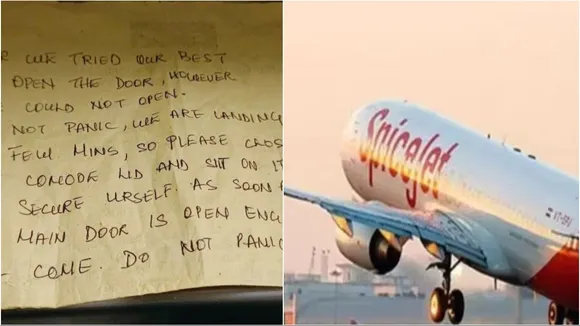 R WE TRIED OUR BEST
OPEN THE DOOR, HOWEVER
COULD NOT OPEN.
NOT PANIC, WE ARE LANDING
FEW MINS, SO PLEASE CLOS
COMODE LID AND SIT ON IT
SECURE URSELF. AS SOON
MAIN DOOR IS OPEN ENG
COME. DO NOT PANIC
SpiceJet